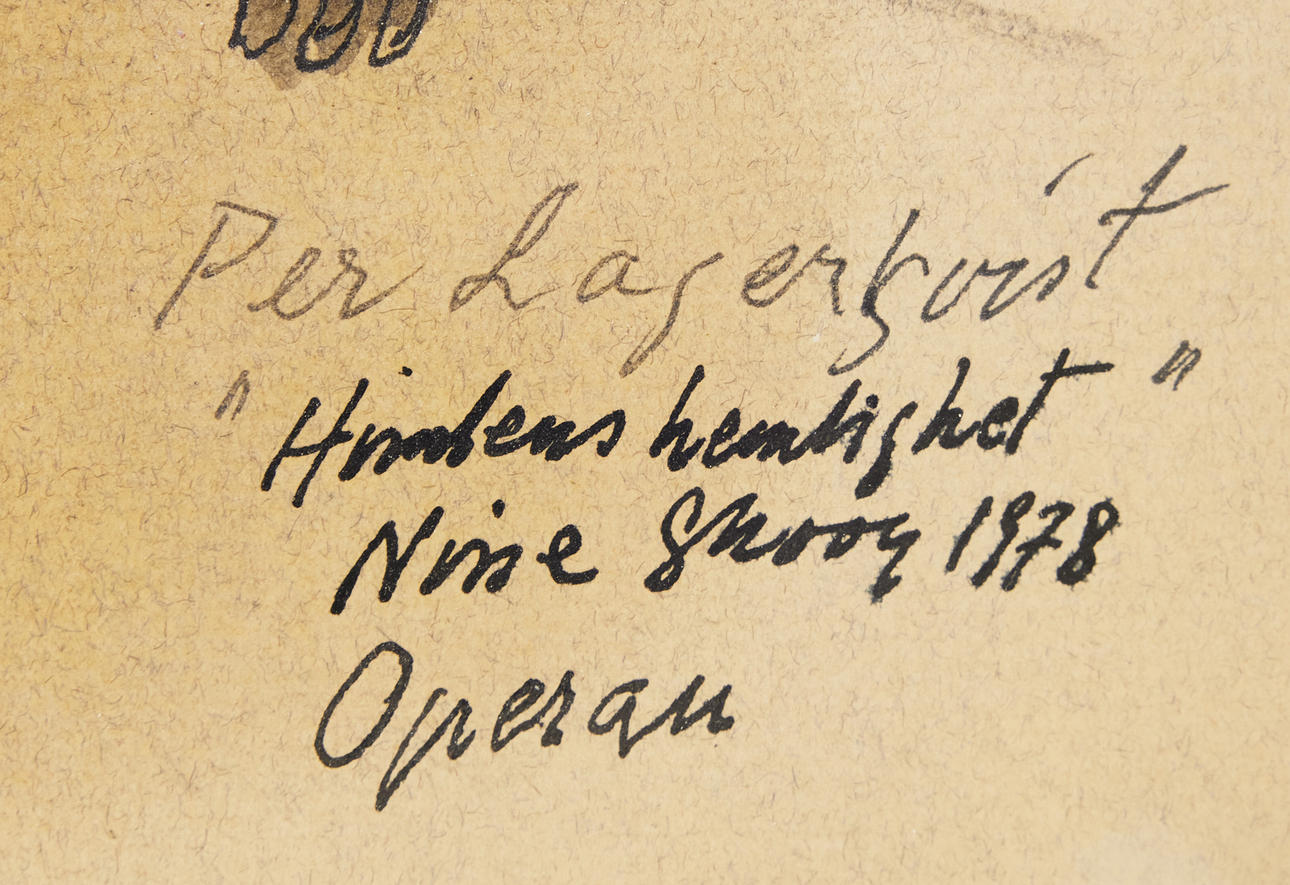 Per Lagerkvist
"Himlens hemlighet"
Nisse Skoog 1978
Operan